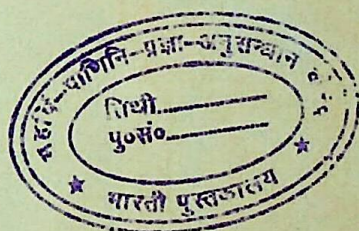 महर्षि-पाणिनि-प्रज्ञा-अनुसन्धान
तिथी
पु०सं०
★ भारती पुस्तकालय ★